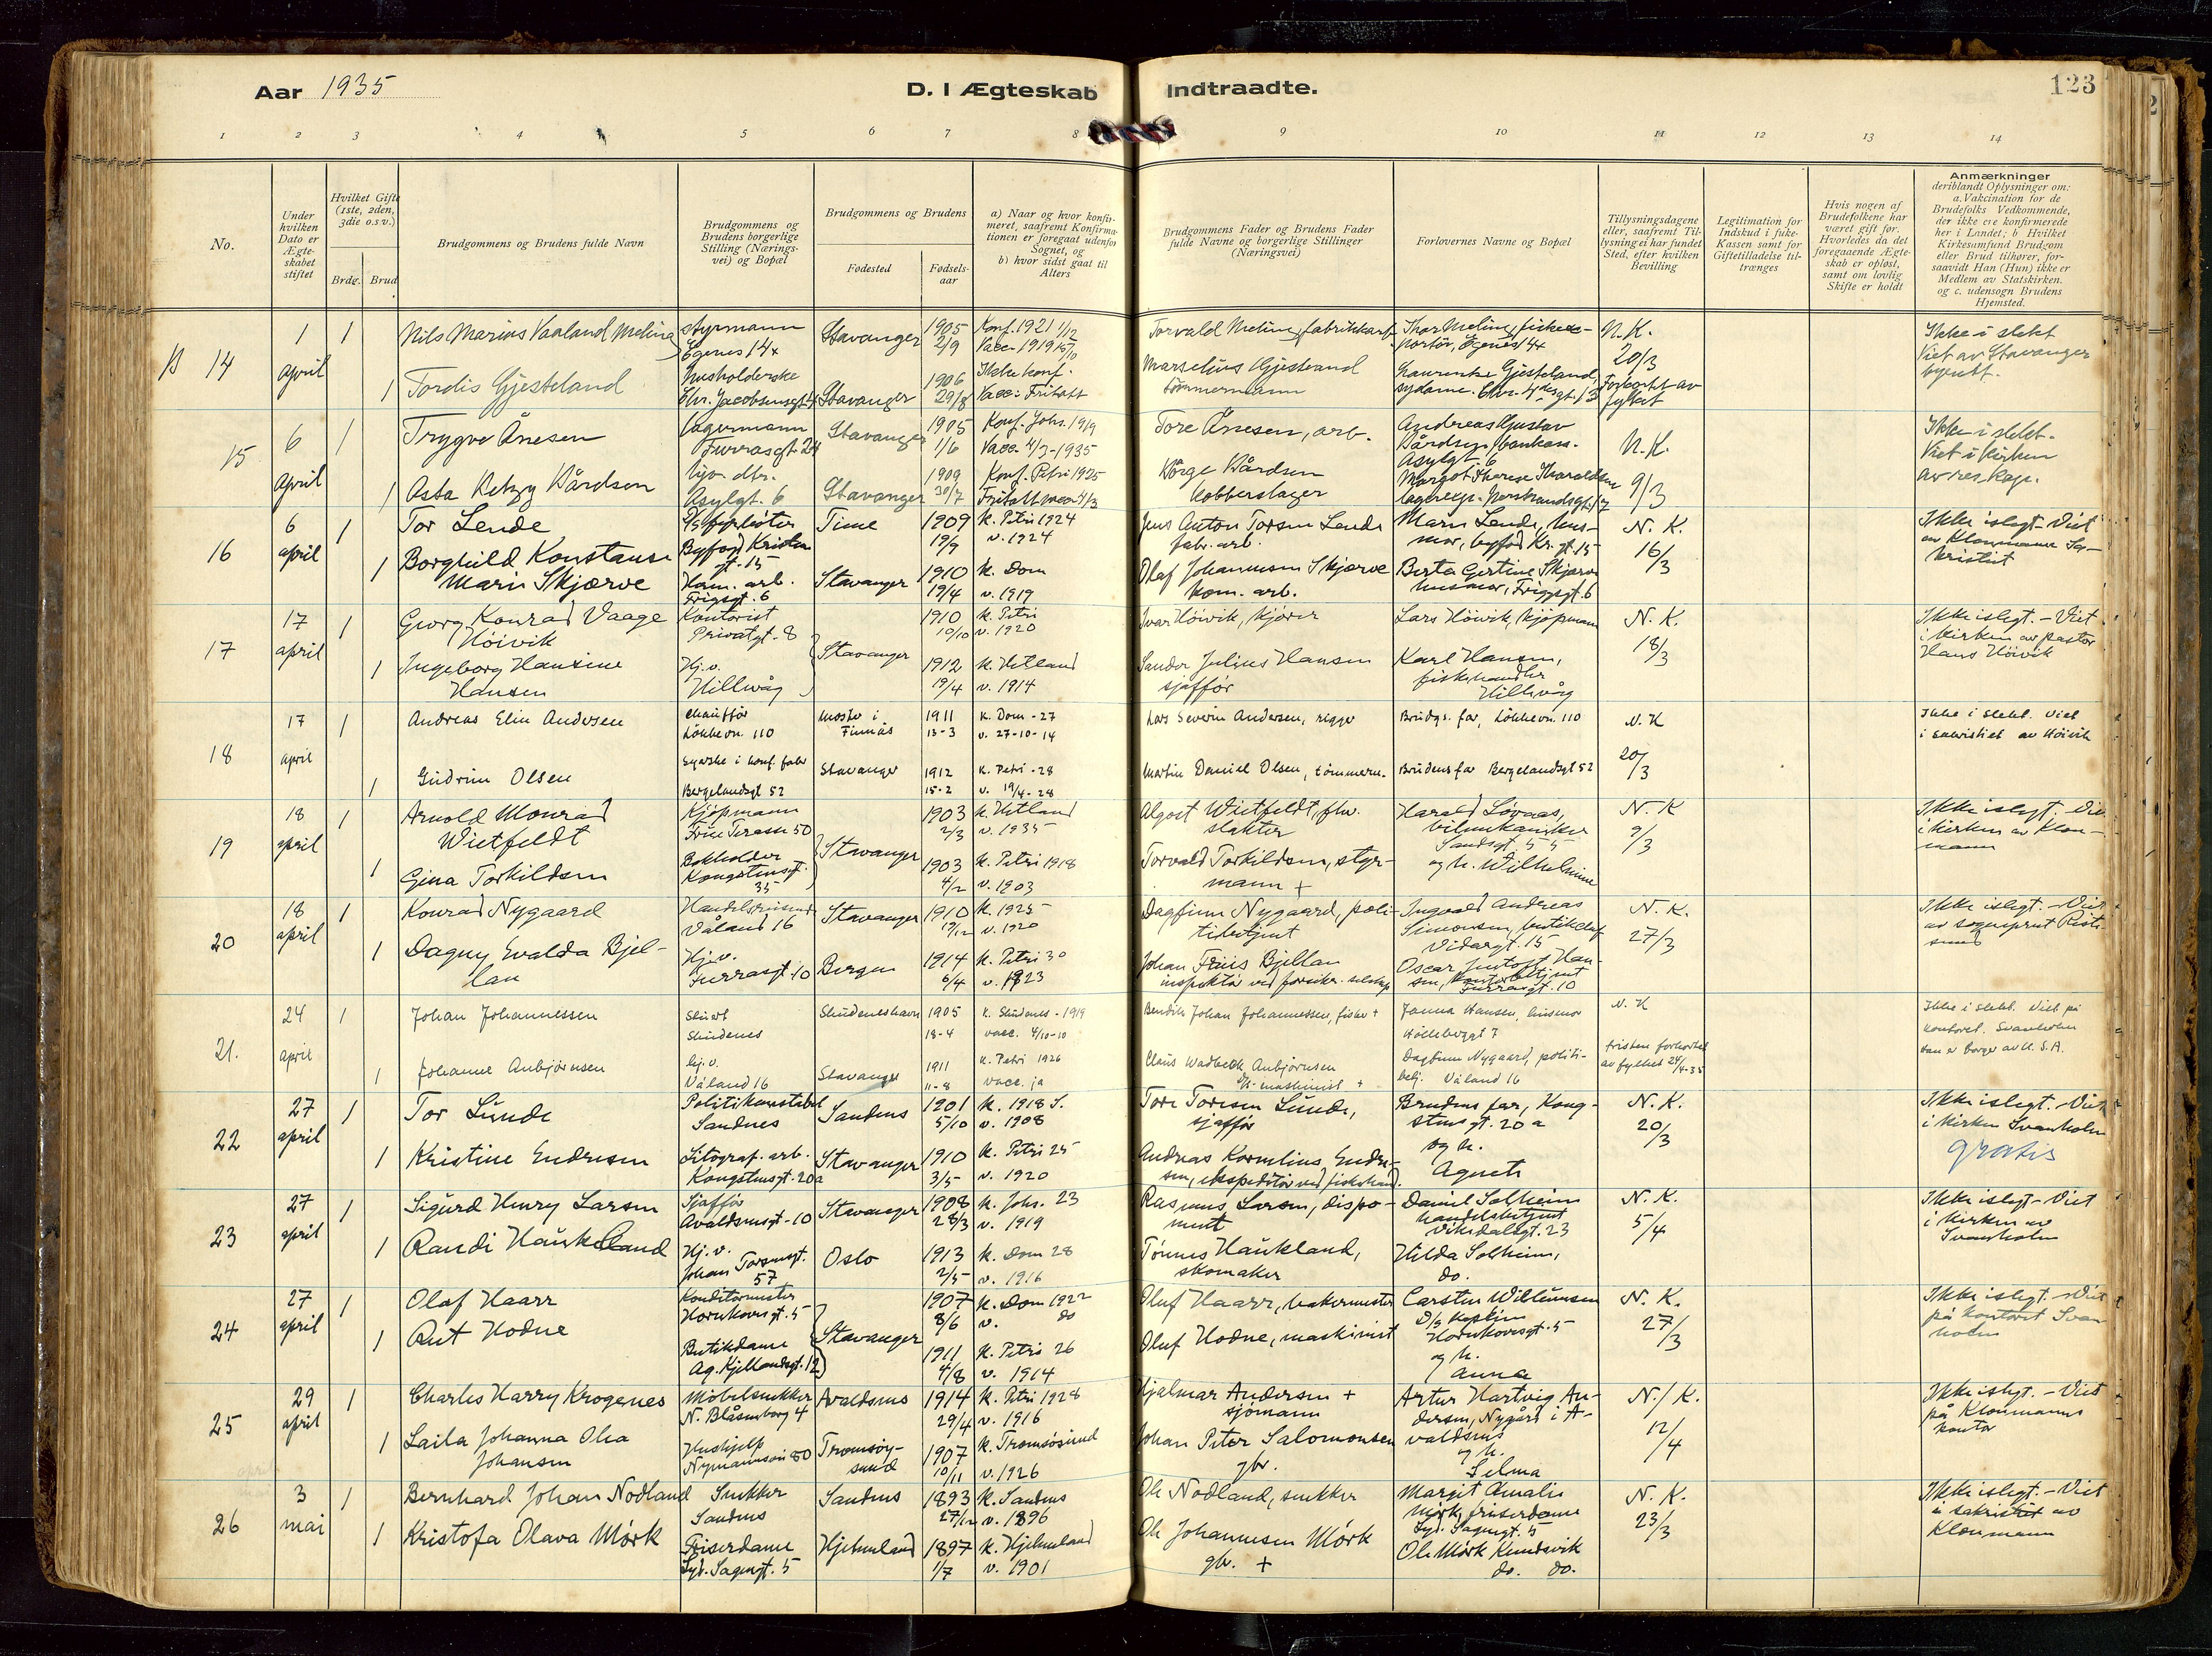 Aar 1935
D. I Ægteskab Indtraadte.
123
1 2 3 4 5 6 7 8 9 10 11 12 13 14
No.
Under hvilken Dato er Ægteskabet stiftet
Hvilket Gifte (1ste, 2den, 3die o.s.v.)
Brdg. Brud
Brudgommens og Brudens fulde Navn
Brudgommens og Brudens borgerlige Stilling (Næringsvei) og Bopæl
Brudgommens og Brudens
Fødested
Fødselsaar
a) Naar og hvor konfirmeret, saafremt Konfirmationen er foregaat udenfor Sognet, og
b) hvor sidst gaat til Alters
Brudgommens Fader og Brudens Fader fulde Navne og borgerlige Stillinger (Næringsvei)
Forlovernes Navne og Bopæl
Tillysningsdagene eller, saafremt Tillysning ei har fundet Sted, efter hvilken Bevilling
Legitimation for Indskud i Enke-Kassen samt for Giftetilladelse tiltrænges
Hvis nogen af Brudefolkene har været gift før. Hvorledes da det foregaaende Ægteskab er opløst, samt om lovlig Skifte er holdt
Anmærkninger
deriblandt Oplysninger om: a. Vakcination for de Brudefolks Vedkommende, der ikke ere konfirmerede her i Landet; b Hvilket Kirkesamfund Brudgom eller Brud tilhører, forsaavidt Han (Hun) ikke er Medlem av Statskirken. og c. udensogn Brudens Hjemsted.
14
1 april
1
Nils Marius Vaaland Meling
styrmann
Egenes 14x
Stavanger
1905
2/9
Konf. 1921 1/12
Vacc. 1919 15/10
Torvald Meling, fabrikkarb.
Thor Meling, fiskeeksportør, Egenes 14x
N. K.
20/3
Forkortet av fylket
Ikke i slekt
Viet av Stavanger
byrett.
1
Tordis Gjesteland
husholderske
Chr. Jacobsensgt. 4
Stavanger
1906
29/8
Ikke konf.
Vacc. Fritatt
Marselius Gjesteland
tømmermann
Laurentse Gjesteland,
sydame. Chr. 4des gt. 13
15
6 april
1
Trygve Ånesen
Lagermann
Furrasgt. 24
Stavanger
1905
1/6
Konf. Johs. 1919
Vacc. 4/3-1935
Tore Ånesen, arb.
Andreas Gustav
Bårdsen, bankass.
Asylgt. 6
N. K.
9/3
Ikke i slekt.
Viet i kirken
av res. kap.
1
Asta Betzy Bårdsen
hjv. dtr.
Asylgt. 6
Stavanger
1909
30/7
Konf. Petri 1925
Fritatt vacc. 4/3
Børge Bårdsen
Kobberslager
16
6 april
1
Tor Lende
Time
1909
19/9
k. Petri 1924
v. 1924
Jens Anton Torsen Lende
fabr. arb.
Marie Lende, husmor, byfogd Kr. gt. 15
N. K.
16/3
Ikke i slegt - Viet
av Klonmann Sakristiet
1
Borghild Konstanse
Marie Skjærve
Ham. arb.
Friggsgt. 6
Stavanger
1910
19/4
k. Dom
v. 1919
Olaf Johannesen Skjærve
kom. arb.
Berta Gertine Skjærve
husmor, Friggsgt. 6
17
17 april
1
Georg Konrad Vaage
Høivik
Kontorist
Privatgt. 8
Stavanger
1910
10/10
k. Petri
v. 1920
Ivar Høivik, kjører
Lars Høivik, kjøpmann
N. K.
18/3
Ikke i slegt. - Viet
i kirken av pastor
Hans Høivik
1
Ingeborg Hansine
Hansen
Hj. v.
Hillevåg
1912
19/4
k. Hetland
v. 1914
Sandor Julius Hansen
sjaffør
Karl Hansen,
fiskehandler
Hillevåg
18
17 april
1
Andreas Elin Andersen
chauffør
Løkkevn. 110
Moster i
Finnås
1911
13-3
k. Dom - 27
v. 27-10-14
Lars Severin Andersen, rigger
Brudgs. far, Løkkevn. 110
N. K
20/3
Ikke i slekt. Viet
i sakristiet av Høivik
1
Gudrun Olsen
Syerske i konf. fabr
Bergelandsgt 52
Stavanger
1912
15-2
k. Petri - 28
v. 19/4-28
Martin Daniel Olsen, tømmerm.
Brudens far Bergelandsgt 52
19
18 april
1
Arnold Monrad
Wietfeldt
Kjøpmann
Frue Terasse 50
Stavanger
1903
2/3
k. Hetland
v. 1935
Algot Wietfeldt, fhv.
slakter
Harald Løvaas,
bilmekaniker
Sandsgt 55
og h. Wilhelmine
N. K
9/3
Ikke i slegt. Viet
i kirken av Klonmann
1
Gina Torkildsen
Bokholder
Kongstensgt.
35
1903
4/2
k. Petri 1918
v. 1903
Torvald Torkildsen, styrmann +
20
18 april
1
Konrad Nygaard
Handelsreisende
Våland 16
Stavanger
1910
17/12
k. 1925
v. 1920
Dagfinn Nygaard, politibetjent
Ingvald Andreas
Simonsen, butikchef
Vidargt. 15
N. K.
27/3
Ikke i slegt. - Viet
av sogneprest
1
Dagny Evalda Bjellan
Hj. v.
Furrasgt. 10
Bergen
1914
6/4
k. Petri 30
v. 1923
Johan Friis Bjellan
inspektør ved forsikr. selskap
Oscar Gustav Hansen, kontorbetjent
Furrasgt. 10
21.
24 april
1
Johan Johannessen
Skudenes
Skudeneshavn
1905
18-4
k. Skudenes - 1919
vacc. 4/10-10
Bendik Johan Johannessen, fisker +
Janna Hansen, husmor
Hølleberggt 7
N. K
fristen forkortet
av fylket 24/4-35
Ikke i slekt. Viet på
kontoret. Svanholm
Han er borger av U. S. A.
1
Johanne Aubjørnsen
hj. v.
Våland 16
Stavanger
1911
11-8
k. Petri 1926
vacc. ja
Claus Wadbeck Aubjørnsen
maskinist +
Dagfinn Nygaard, politibetj. Våland 16
22
27 april
1
Tor Lunde
Politikonstabel
Sandnes
Sandnes
1901
5/10
k. 1918 S.
v. 1908
Tore Toresen Lunde,
sjaffør
Brudens far, Kongstensgt. 20 a
og h.
Agnete
N. K.
20/3
Ikke i slegt. - Viet
i kirken Svanholm
gratis
1
Kristine Endresen
Litograf. arb.
Kongstensgt. 20a
Stavanger
1910
3/5
k. Petri 25
v. 1920
Andreas Kornelius Endresen, ekspeditør ved fiskehand.
23
27 april
1
Sigurd Henry Larsen
Sjaffør
Avaldsnesgt. 10
Stavanger
1908
28/3
k. Johs. 23
v. 1919
Rasmus Larsen, disponent
Daniel Solheim
handelsbetjent
Vikedalsgt. 23
N. K.
5/4
Ikke i slegt - Viet
i kirken av
Svanholm
1
Randi Haukeland
Hj. v.
Johan Torsensgt.
57
Oslo
1913
2/5
k. Dom 28
v. 1916
Tønnes Haukland,
skomaker
Hilda Solheim,
do.
24
27 april
1
Olaf Haarr
Konditormester
Hornkovsgt. 5
Stavanger
1907
8/6
k. Dom 1922
v. do
Oluf Haarr, bakermester
Carsten Willumsen
D/s kaptein
Hornkovsgt. 5
og h.
Anna
N. K.
27/3
Ikke i slegt. - Viet
på kontoret Svanholm
1
Rut Hodne
Butikdame
Ag. Kjellandsgt. 12
1911
4/8
k. Petri 26
v. 1914
Oluf Hodne, maskinist
25
29 april
1
Charles Harry Krogenes
Møbelsnekker
N. Blåsenborg 4
Avaldsnes
1914
29/4
k. Petri 1928
v. 1916
Hjalmar Andersen +
sjømann
Artur Hartvig Andersen, Nygård i Avaldsnes
og h.
Selma
N. K.
12/4
Ikke i slegt. - Viet
på Klonmanns
kontor
1
Laila Johanna Olea
Johansen
Hushjelp
Nymannsvei 80
Tromsøysund
1907
10/11
k. Tromsøsund
v. 1926
Johan Peter Salomonsen
gbr.
26
3 mai
1
Bernhard Johan Nodland
Snekker
Sandnes
Sandnes
1893
27/12
k. Sandnes
v. 1896
Ole Nodland, snekker
Margit Amalie
Mørk, friserdame
Syd. Sagengt. 5
N. K.
23/3
Ikke i slegt. - Viet
i sakristiet av
Klonmann
1
Kristofa Olava Mørk
Friserdame
Syd. Sagengt. 5
Hjelmeland
1897
1/7
k. Hjelmeland
v. 1901
Ole Johannesen Mørk
gbr. +
Ole Mørk Kendsvik
do. do.